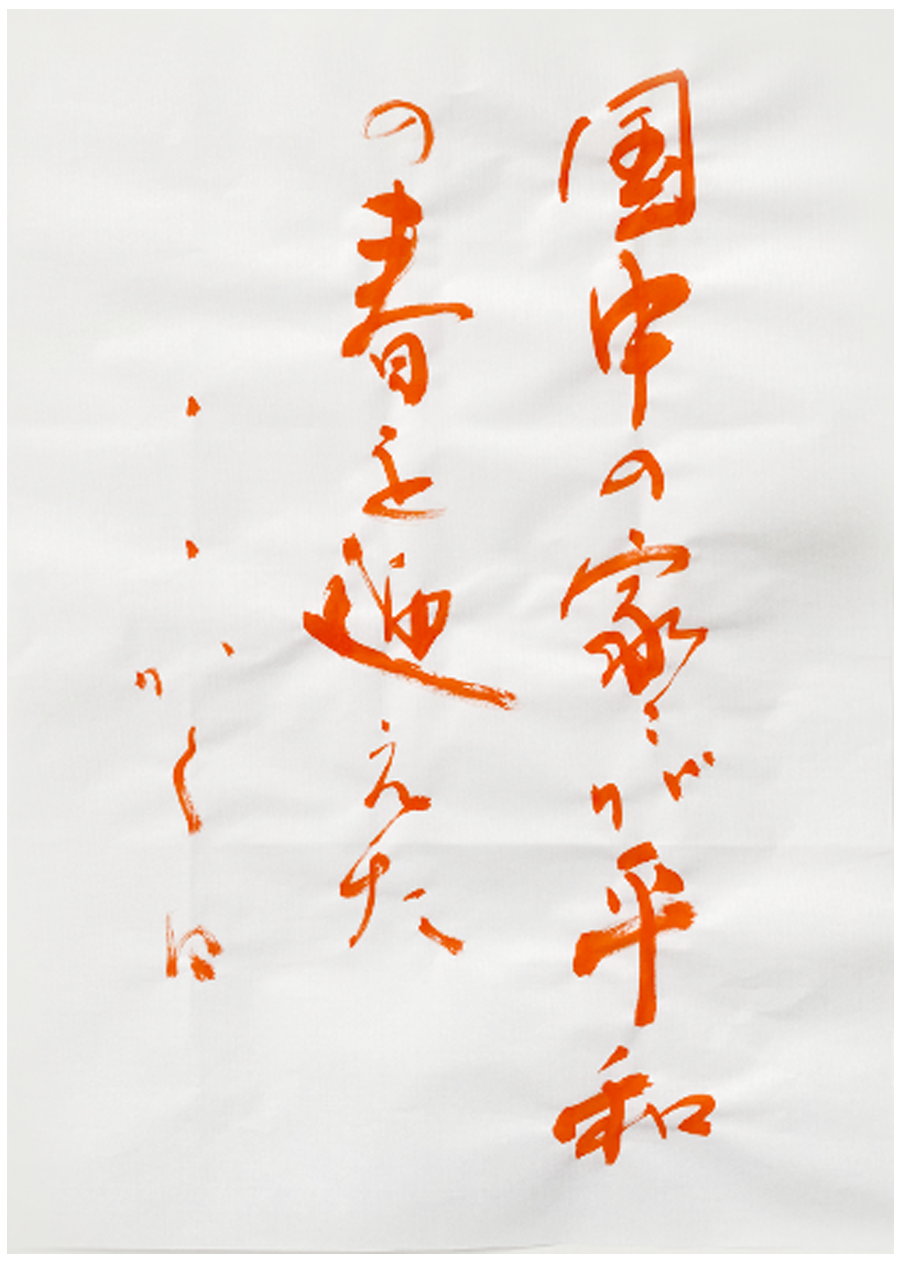 国中の家々が平和
の春を迎えた